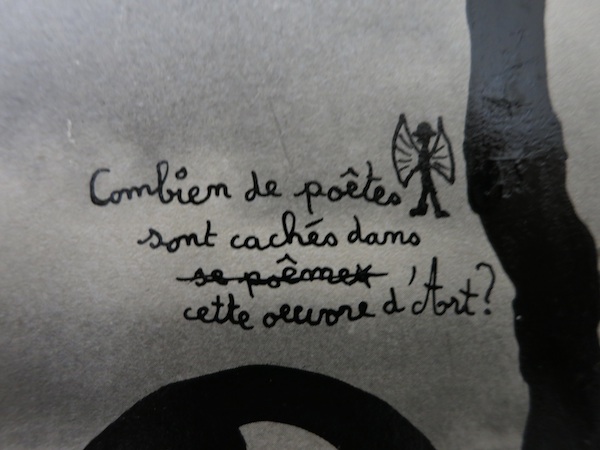 Combien de poêtes
sont cachés dans
se poêmex
cette oeuvre d'Art?